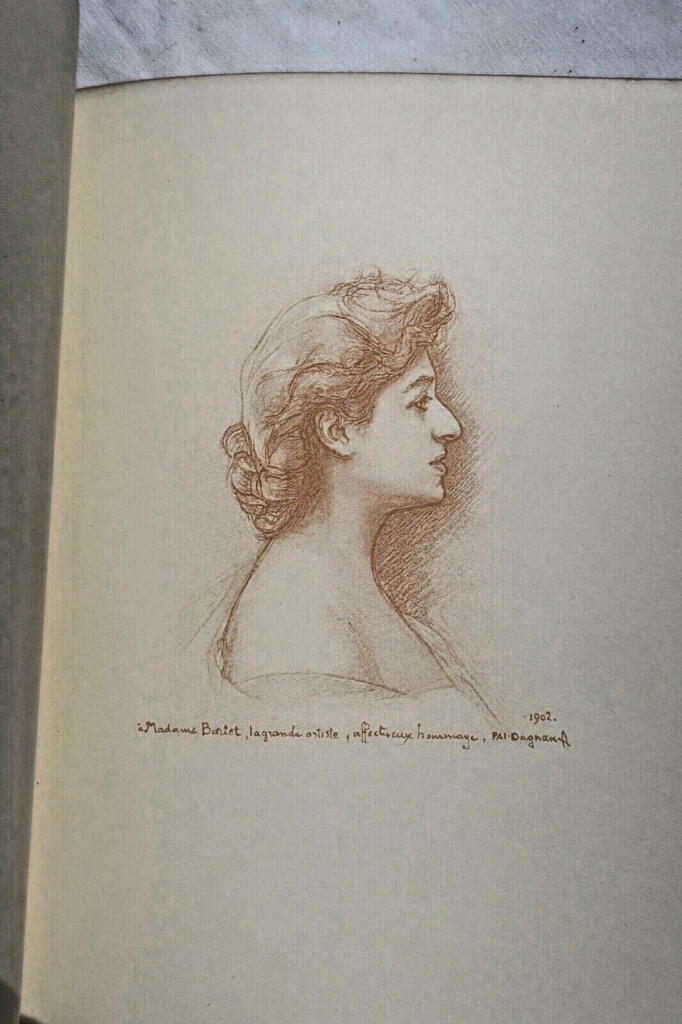 · 1902 .
à Madame Bartet , la grande artiste , affectueux hommage , PAJ· Dagnan-B